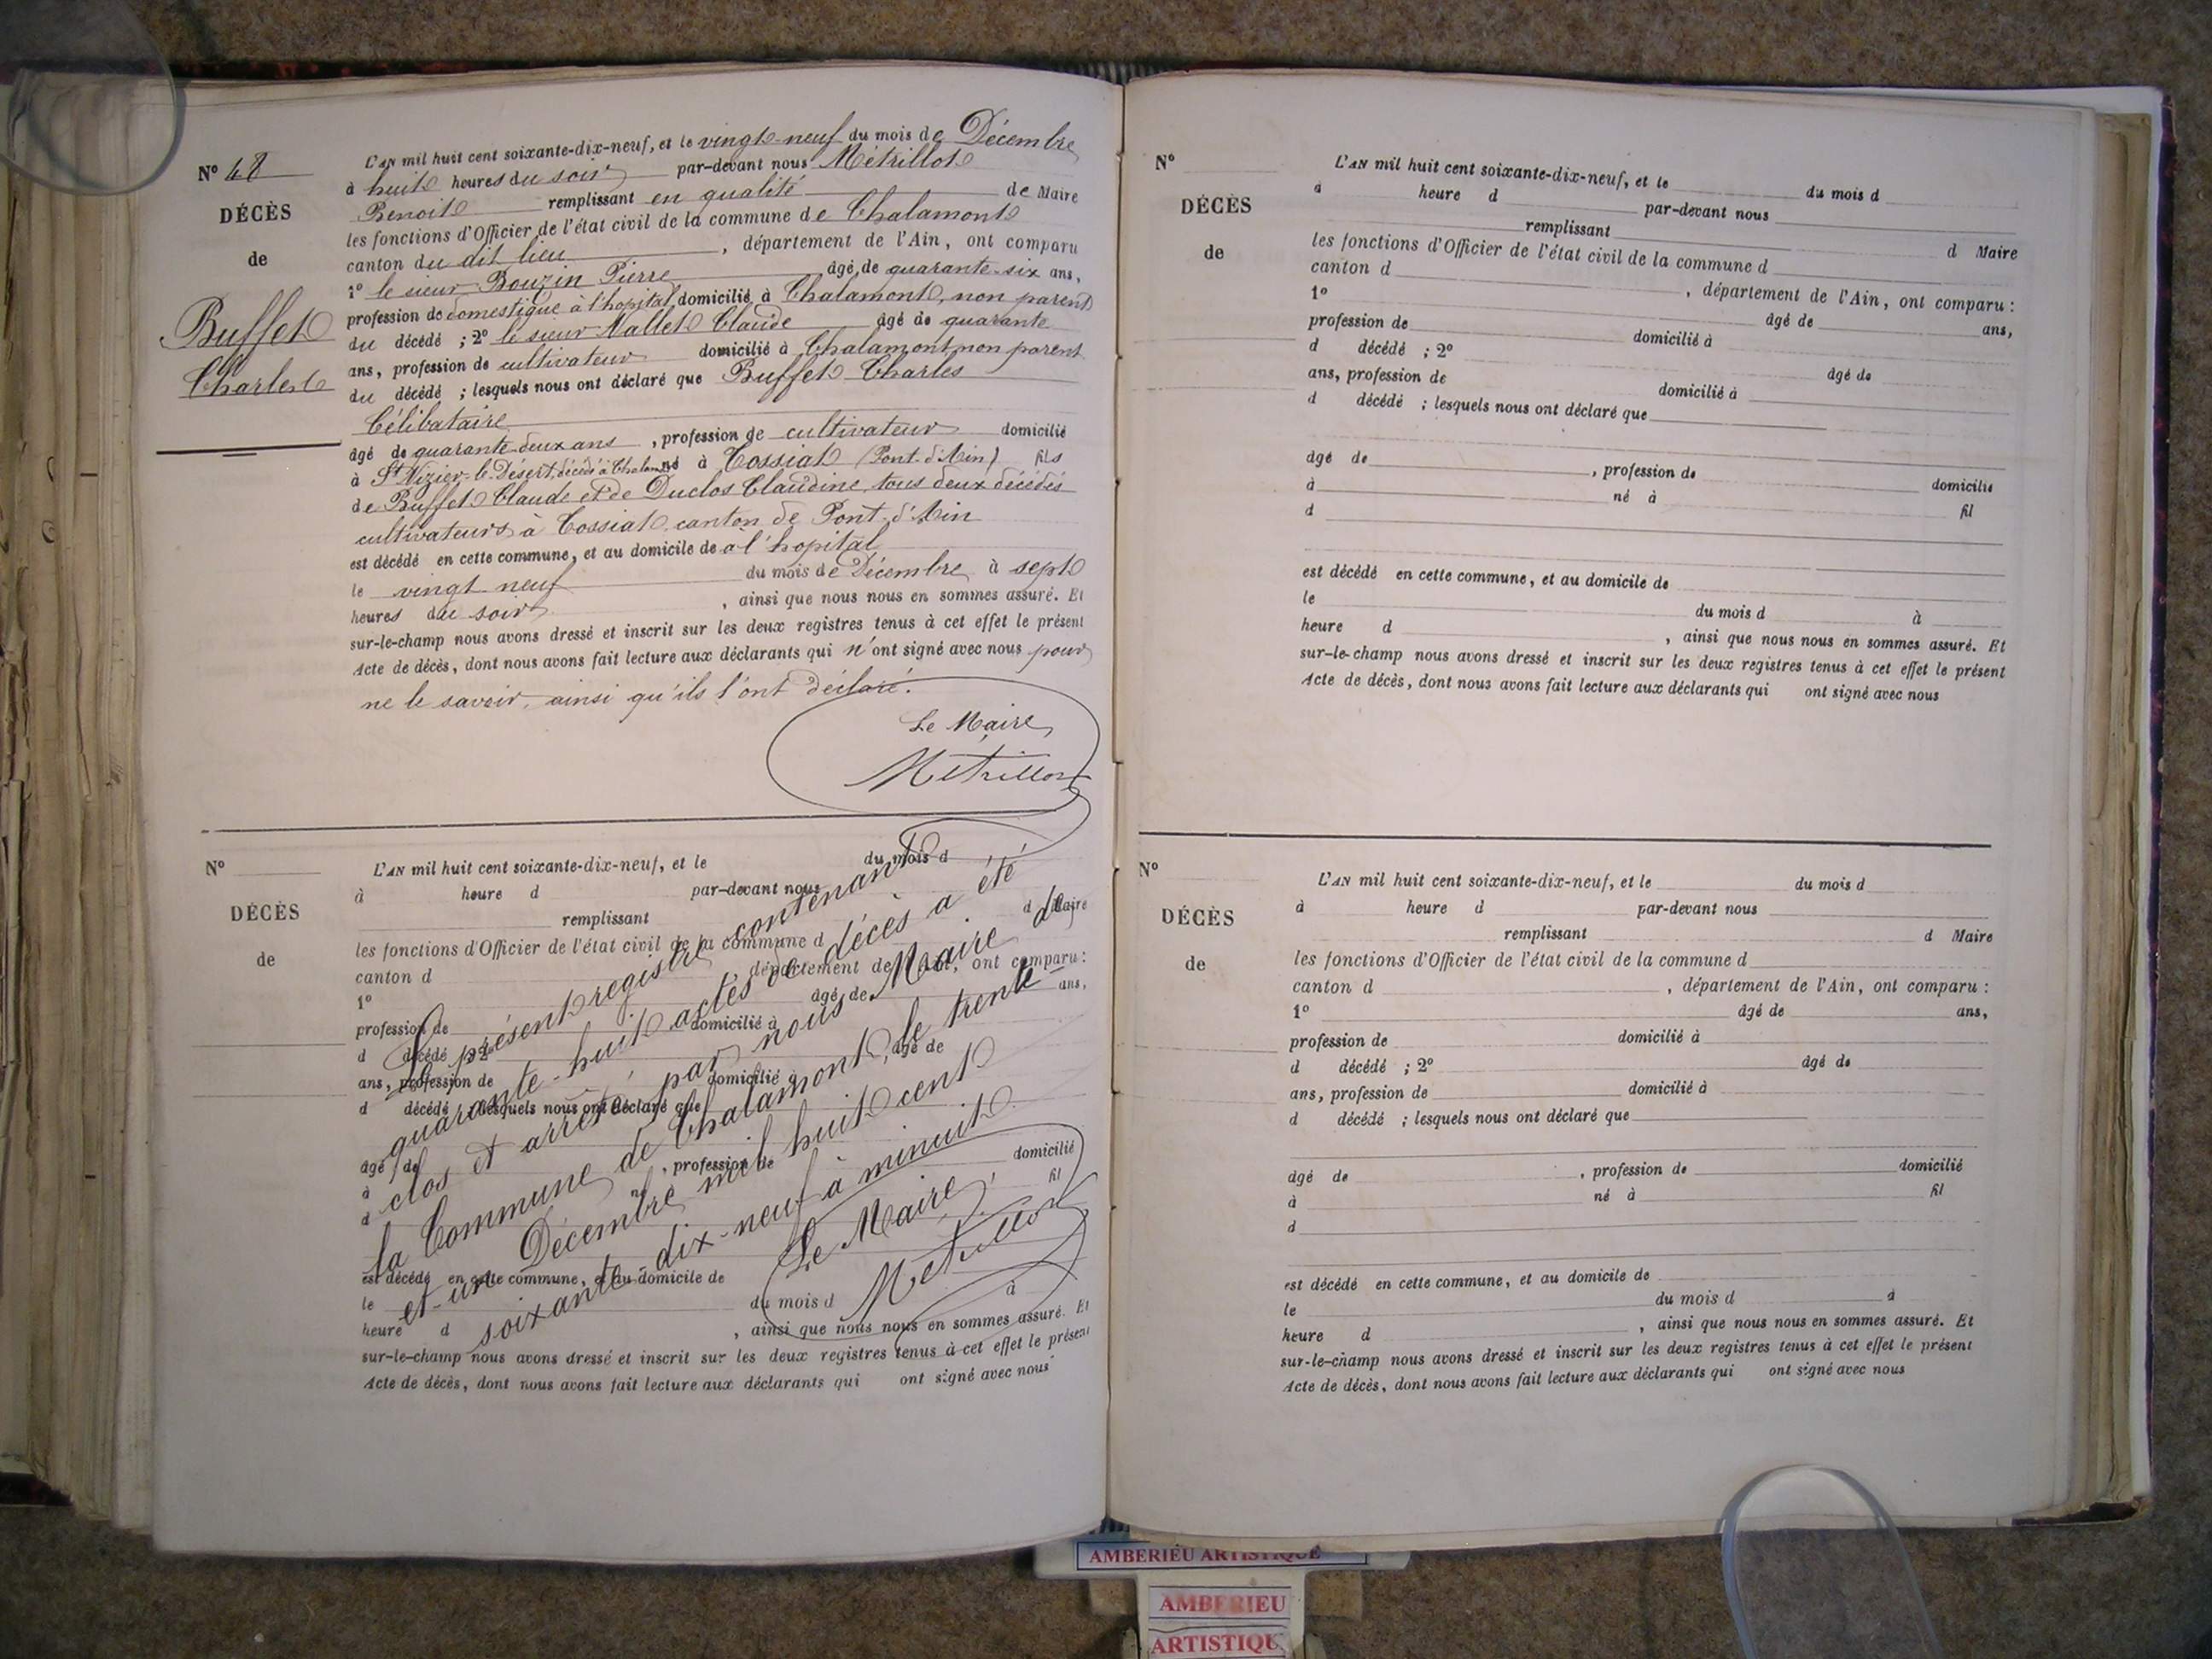 N° 48
DÉCÈS
de
Buffet
Charles
L'AN mil huit cent soixante-dix-neuf, et le vingt-neuf du mois de Décembre
à huit heures du soir par-devant nous Métrillot
Benoit remplissant en qualité de Maire
les fonctions d'Officier de l'état civil de la commune de Chalamont
canton du dit lieu, département de l'Ain, ont comparu
1° le sieur Bouzin Pierre âgé de quarante-six ans,
profession de domestique à l'hopital domicilié à Chalamont, non parent
du décédé ; 2° le sieur Mallet Claude âgé de quarante
ans, profession de cultivateur domicilié à Chalamont non parent
du décédé ; lesquels nous ont déclaré que Buffet Charles
Célibataire
âgé de quarante-deux ans, profession de cultivateur domicilié
à St Nizier-le-Désert, décédé à Chalamont né à Tossiat (Pont-d'Ain) fils
de Buffet Claude et de Duclos Claudine, tous deux décédés
cultivateurs à Tossiat canton de Pont-d'Ain
est décédé en cette commune, et au domicile de à l'hopital
le vingt neuf du mois de Décembre à sept
heures du soir, ainsi que nous nous en sommes assuré. Et
sur-le-champ nous avons dressé et inscrit sur les deux registres tenus à cet effet le présent
Acte de décès, dont nous avons fait lecture aux déclarants qui n'ont signé avec nous pour
ne le savoir, ainsi qu'ils l'ont déclaré.
Le Maire
Métrillot
N°
DÉCÈS
de
L'AN mil huit cent soixante-dix-neuf, et le du mois d
à heure d par-devant nous
remplissant d Maire
les fonctions d'Officier de l'état civil de la commune d
canton d , département de l'Ain, ont comparu :
1° âgé de ans,
profession de domicilié à
d décédé ; 2° âgé de
ans, profession de domicilié à
d décédé ; lesquels nous ont déclaré que
âgé de , profession de domicilié
à né à fil
d
est décédé en cette commune, et au domicile de
le du mois d à
heure d , ainsi que nous nous en sommes assuré. Et
sur-le-champ nous avons dressé et inscrit sur les deux registres tenus à cet effet le présent
Acte de décès, dont nous avons fait lecture aux déclarants qui ont signé avec nous
Le présent registre contenant
quarante-huit actes de décès a été
clos et arrêté par nous Maire de
la Commune de Chalamont, le trente
et un Décembre mil huit cent
soixante-dix-neuf à minuit.
Le Maire,
Métrillot
N°
DÉCÈS
de
L'AN mil huit cent soixante-dix-neuf, et le du mois d
à heure d par-devant nous
remplissant d Maire
les fonctions d'Officier de l'état civil de la commune d
canton d , département de l'Ain, ont comparu :
1° âgé de ans,
profession de domicilié à
d décédé ; 2° âgé de
ans, profession de domicilié à
d décédé ; lesquels nous ont déclaré que
âgé de , profession de domicilié
à né à fil
d
est décédé en cette commune, et au domicile de
le du mois d à
heure d , ainsi que nous nous en sommes assuré. Et
sur-le-champ nous avons dressé et inscrit sur les deux registres tenus à cet effet le présent
Acte de décès, dont nous avons fait lecture aux déclarants qui ont signé avec nous
N°
DÉCÈS
de
L'AN mil huit cent soixante-dix-neuf, et le du mois d
à heure d par-devant nous
remplissant d Maire
les fonctions d'Officier de l'état civil de la commune d
canton d , département de l'Ain, ont comparu :
1° âgé de ans,
profession de domicilié à
d décédé ; 2° âgé de
ans, profession de domicilié à
d décédé ; lesquels nous ont déclaré que
âgé de , profession de domicilié
à né à fil
d
est décédé en cette commune, et au domicile de
le du mois d à
heure d , ainsi que nous nous en sommes assuré. Et
sur-le-champ nous avons dressé et inscrit sur les deux registres tenus à cet effet le présent
Acte de décès, dont nous avons fait lecture aux déclarants qui ont signé avec nous
AMBERIEU ARTISTIQUE
AMBERIEU
ARTISTIQU